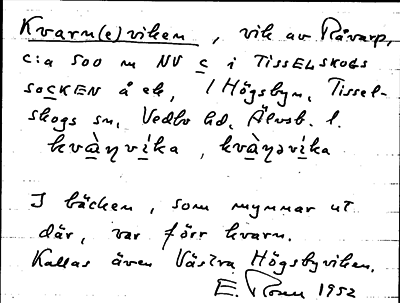 Kvarn(e)viken, vik av Råvarp,
c:a 500 m NV c i TISSELSKOGS
SOCKEN å ek, / Högsbyn, Tissel-
skogs sn, Vedbo hd, Älvsb. l.
kvàŋvíka, kvàŋəvíka
I bäcken, som mynnar ut
där, var förr kvarn.
Kallas även Västra Högsbyviken.
E. 1952